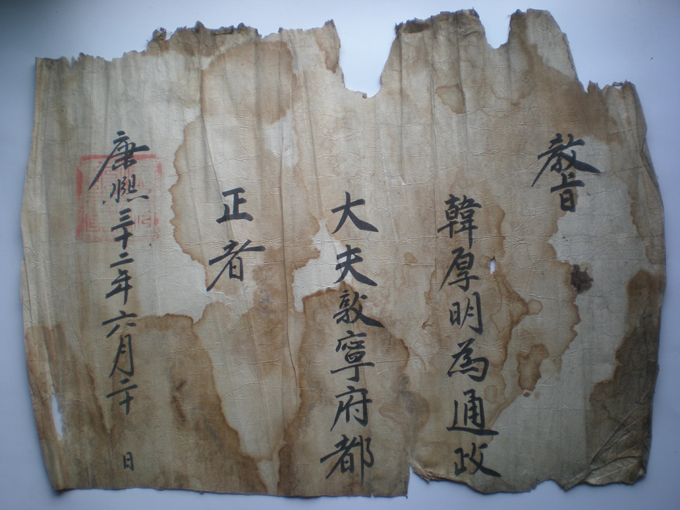 教旨
韓厚明為通政
大夫敦寧府都
正者
康熙三十二年六月二十 日